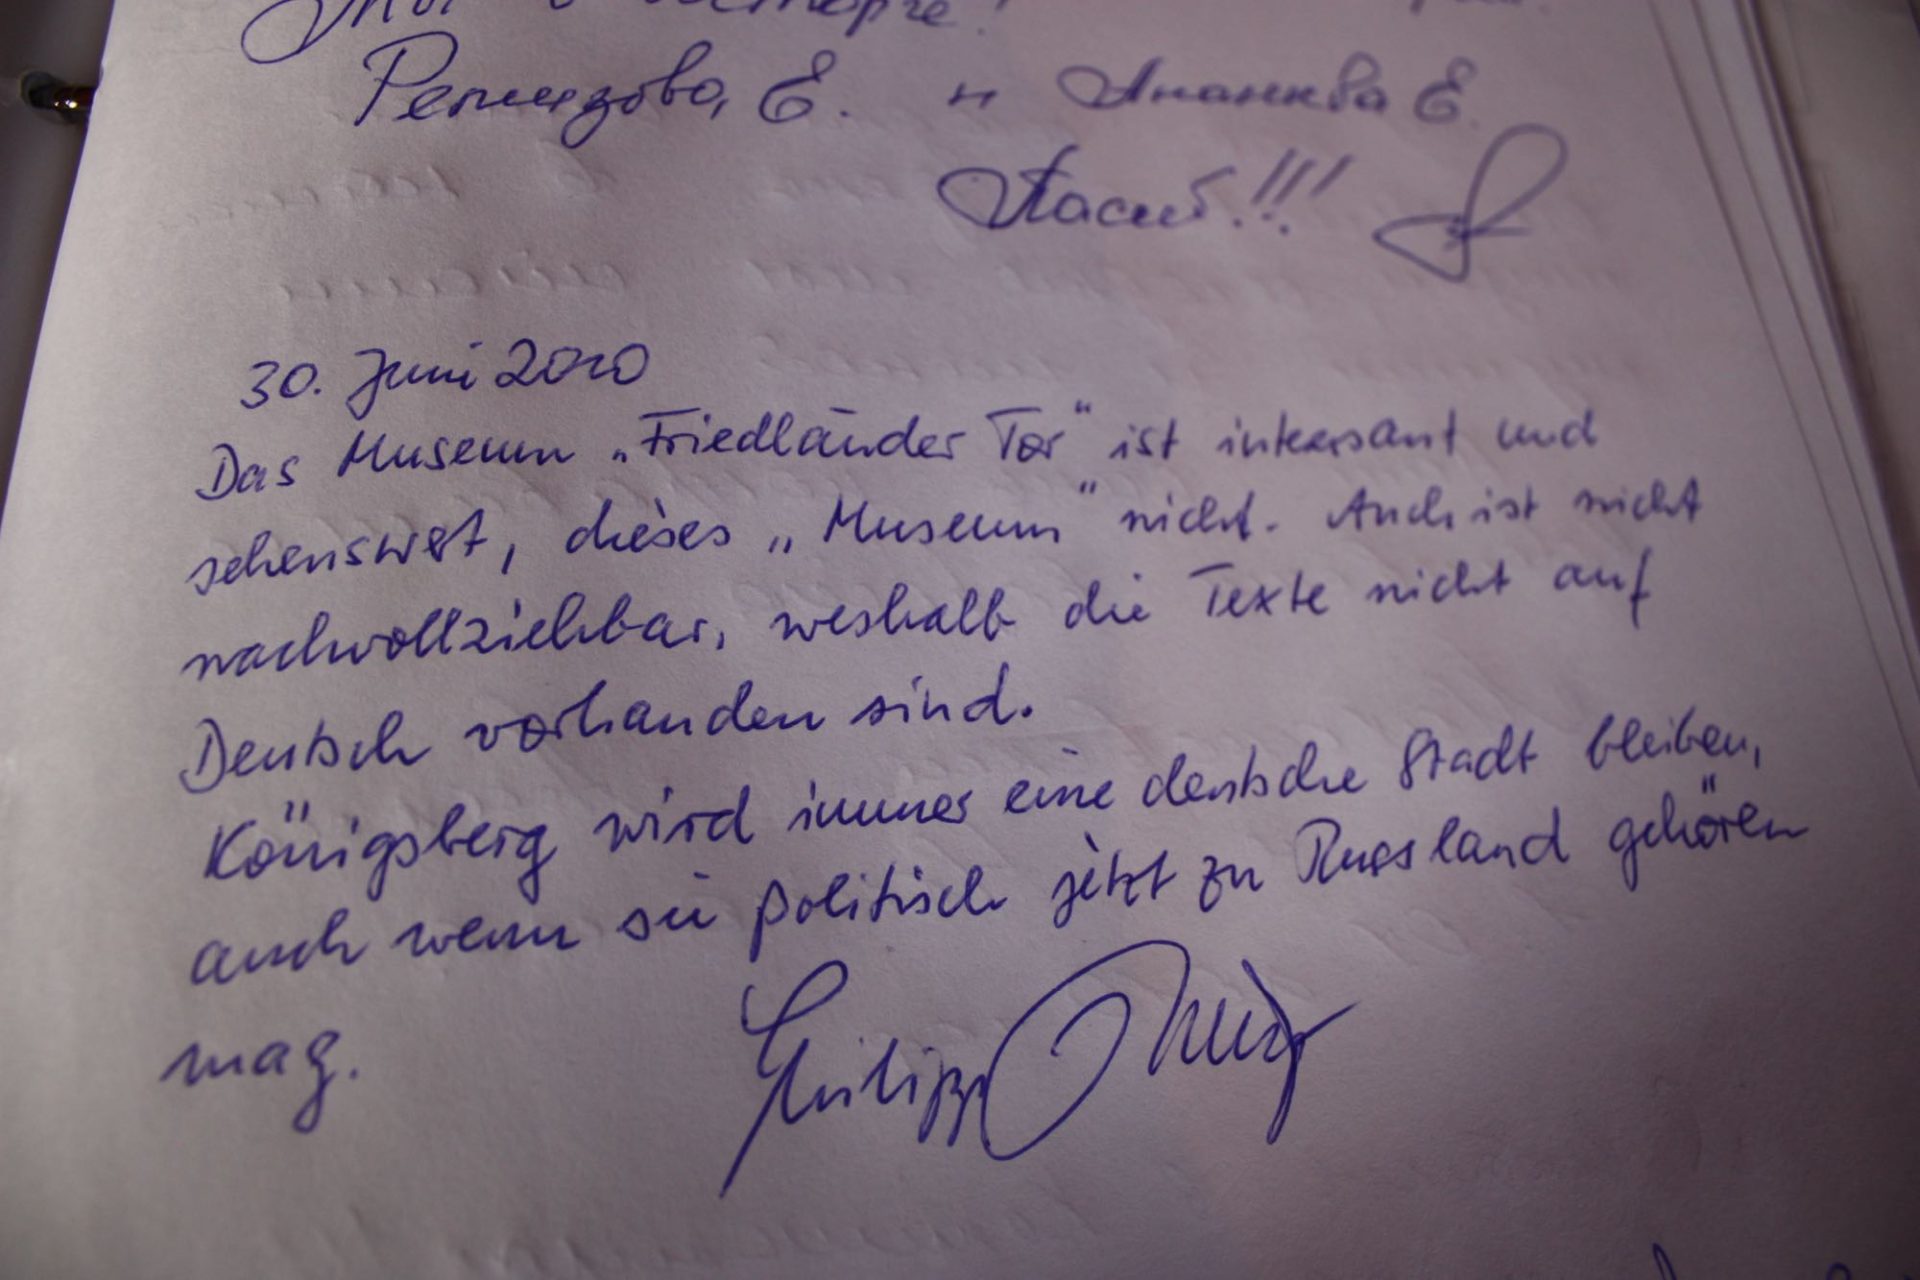 Мы в восторге!
Е. и Е.
!!!
30. Juni 2010
Das Museum „Friedländer Tor" ist interessant und
sehenswert, dieses „Museum" nicht. Auch ist nicht
nachvollziehbar, weshalb die Texte nicht auf
Deutsch vorhanden sind.
Königsberg wird immer eine deutsche Stadt bleiben,
auch wenn sie politisch jetzt zu Russland gehören
mag.
Philipp